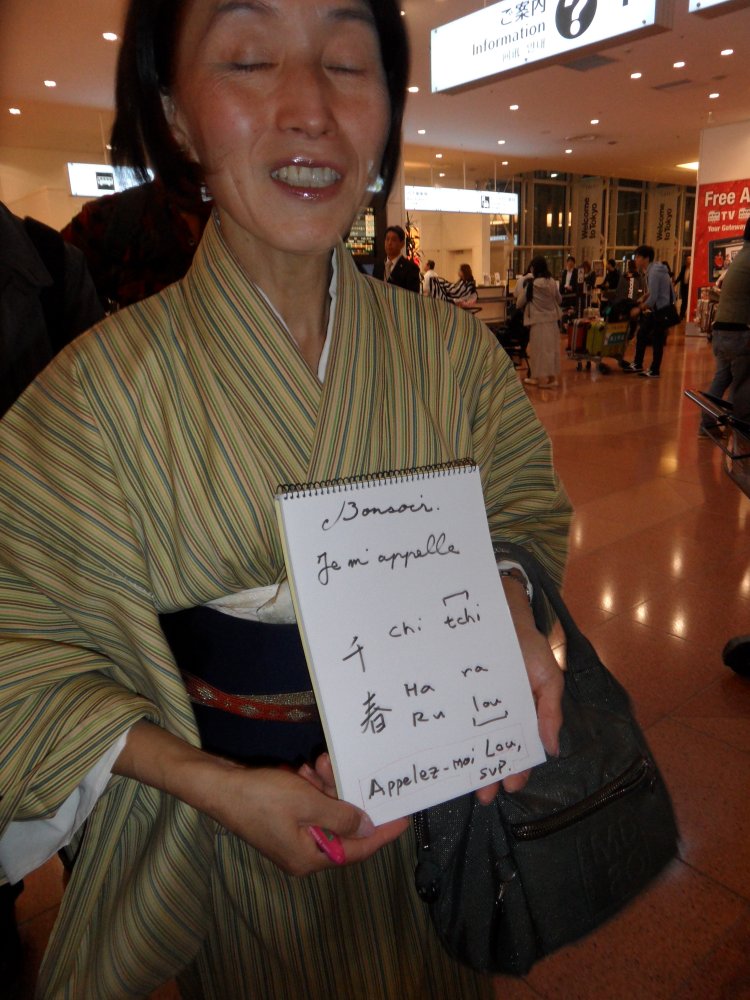 ご案内 ?
Information
Welcome to Tokyo
Welcome to Tokyo
Free A
TV
Your Gatewa
Bonsoir.
Je m'appelle
千 chi tchi
春 Ha ra
Ru lou
Appelez-moi Lou,
svp.